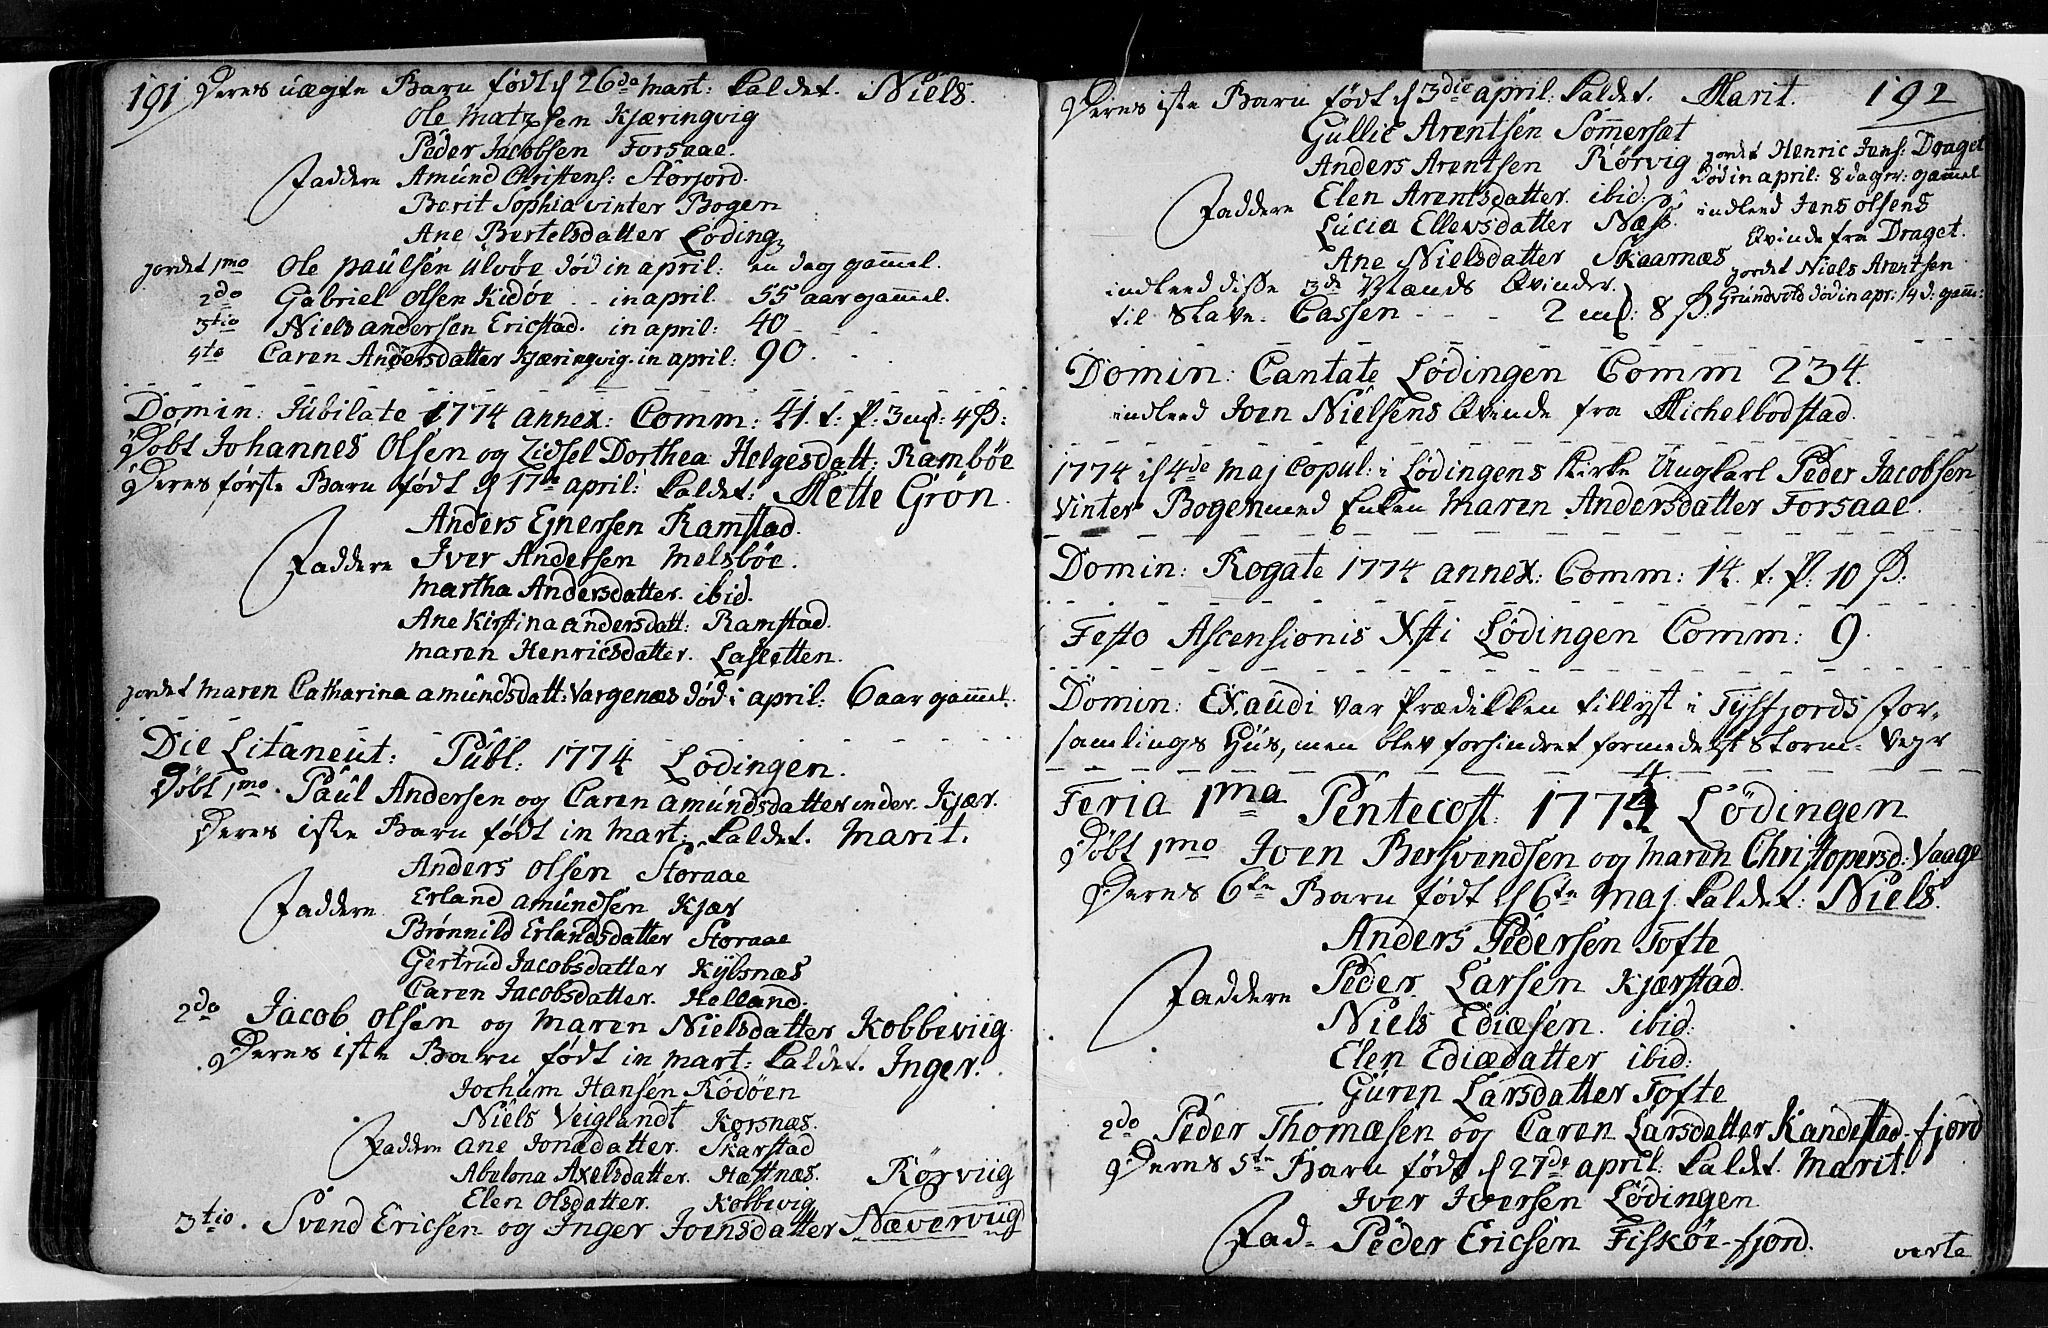 191 Deres uægte Barn født d 26de Mart: kaldet. Niels.
Ole Matzsen Kjæringvig
Peder Jacobsen Forsaae.
Faddere Amund Christens: Storjord.
Berit Sophia Vinter Bogen
Ane Bertelsdatter Løding
jordet 1mo Ole Paulsen Ulvøe død in april: en dag gam̄el.
2do Gabriel Olsen Kidøe - - in april. 55 aar gam̄el.
3tio Niels Andersen Ericstad. in april: 40 - - -
4to Caren Andersdatter Kjæringvig. in april: 90. - - -
Domin: Jubilate 1774 annex: Comm: 41. t: P: 3 mk: 4 ß:
Døbt Johannes Olsen og Zidsel Dorthea Helgesdatt: Rambøe
Deres første Barn født d 17de april: kaldet: Mette Grøn.
Anders Ejnersen Ramstad.
Faddere Iver Andersen Melsbøe.
Martha Andersdatter. ibid.
Ane Kirstina Andersdatt: Ramstad.
Maren Henricsdatter. Lasletten.
jordet Maren Catharina Amundsdatt: Vargenæs død i april: 6 aar gam̄el.
Die Litaneut: Publ: 1774 Lødingen.
Døbt 1mo. Paul Andersen og Caren Amundsdatter inder. Kjær.
Deres 1ste Barn født in Mart: kaldet. Marit.
Anders Olsen Storaae
Faddere Erland Amundsen Kjær
Brønnild Erlandsdatter Storaae
Gertrud Jacobsdatter Kylsnæs
Caren Jacobsdatter. Helland.
2do Jacob Olsen og Maren Nielsdatter Kobbeviig.
Deres 1ste Barn født in Mart: kaldet. Inger.
Jochum Hansen Rødøen
Niels Veiglandt Korsnæs.
Faddere Ane Jonædatter. Skarstad
Abelona Axelsdatter. Hæstnæs. Rørviig
Elen Olsdatter. Kobbevig
3tio. Svend Ericsen og Inger Joensdatter Næverviig
Deres 1ste Barn født d 3die april: kaldet. Marit. 192
Gullic Arentsen Som̄ersæt
Anders Arentsen Rørvig
Faddere Elen Arentsdatter. ibid:
Lucia Ellevsdatter Næss.
Ane Nielsdatter Skaarnæs
jordet Henric Jens: Draget
Død in april: 8 dager: gam̄el
indleed Jens Olsens
Qvinde fra Draget.
jordet Niels Arentsen
Grundvold død in apr: 14 d: gam̄:
indleed disse 3de Mænds Qvinder.
til Slave-Cassen - - - 2 mk: 8 ß:
Domin: Cantate Lødingen Comm 234.
indleed Joen Nielsens Qvinde fra Michelbodstad.
1774 d 4de Maj Copul: i Lødingens Kirke Ungkarl Peder Jacobsen
Vinter Bogen med Enken Maren Andersdatter Forsaae.
Domin: Rogate 1774 annex: Comm: 14. t: P: 10 ß:
Festo Ascensionis Xsti Lødingen Comm: 9.
Domin: Exaudi var Prædikken tillyst i Tysfjords For-
samlings Hus, men blev forhindret formedelst Storm-Vejr
Feria 1ma Pentecost: 1774 Lødingen
Døbt 1mo Joen Bersvendsen og Maren Christopersd: Vaage
Deres 6te Barn født d 6te Maj kaldet: Niels.
Anders Pedersen Tofte
Faddere Peder Larsen Kjærstad.
Niels Ediæsen. ibid:
Elen Ediædatter ibid:
Guren Larsdatter Tofte
2do Peder Thomæsen og Caren Larsdatter Kandestad-fjord
Deres 5te Barn født d 27de april: kaldet. Marit.
Iver Iversen Lødingen
Fad- Peder Ericsen Fiskøe-fjord.
verte